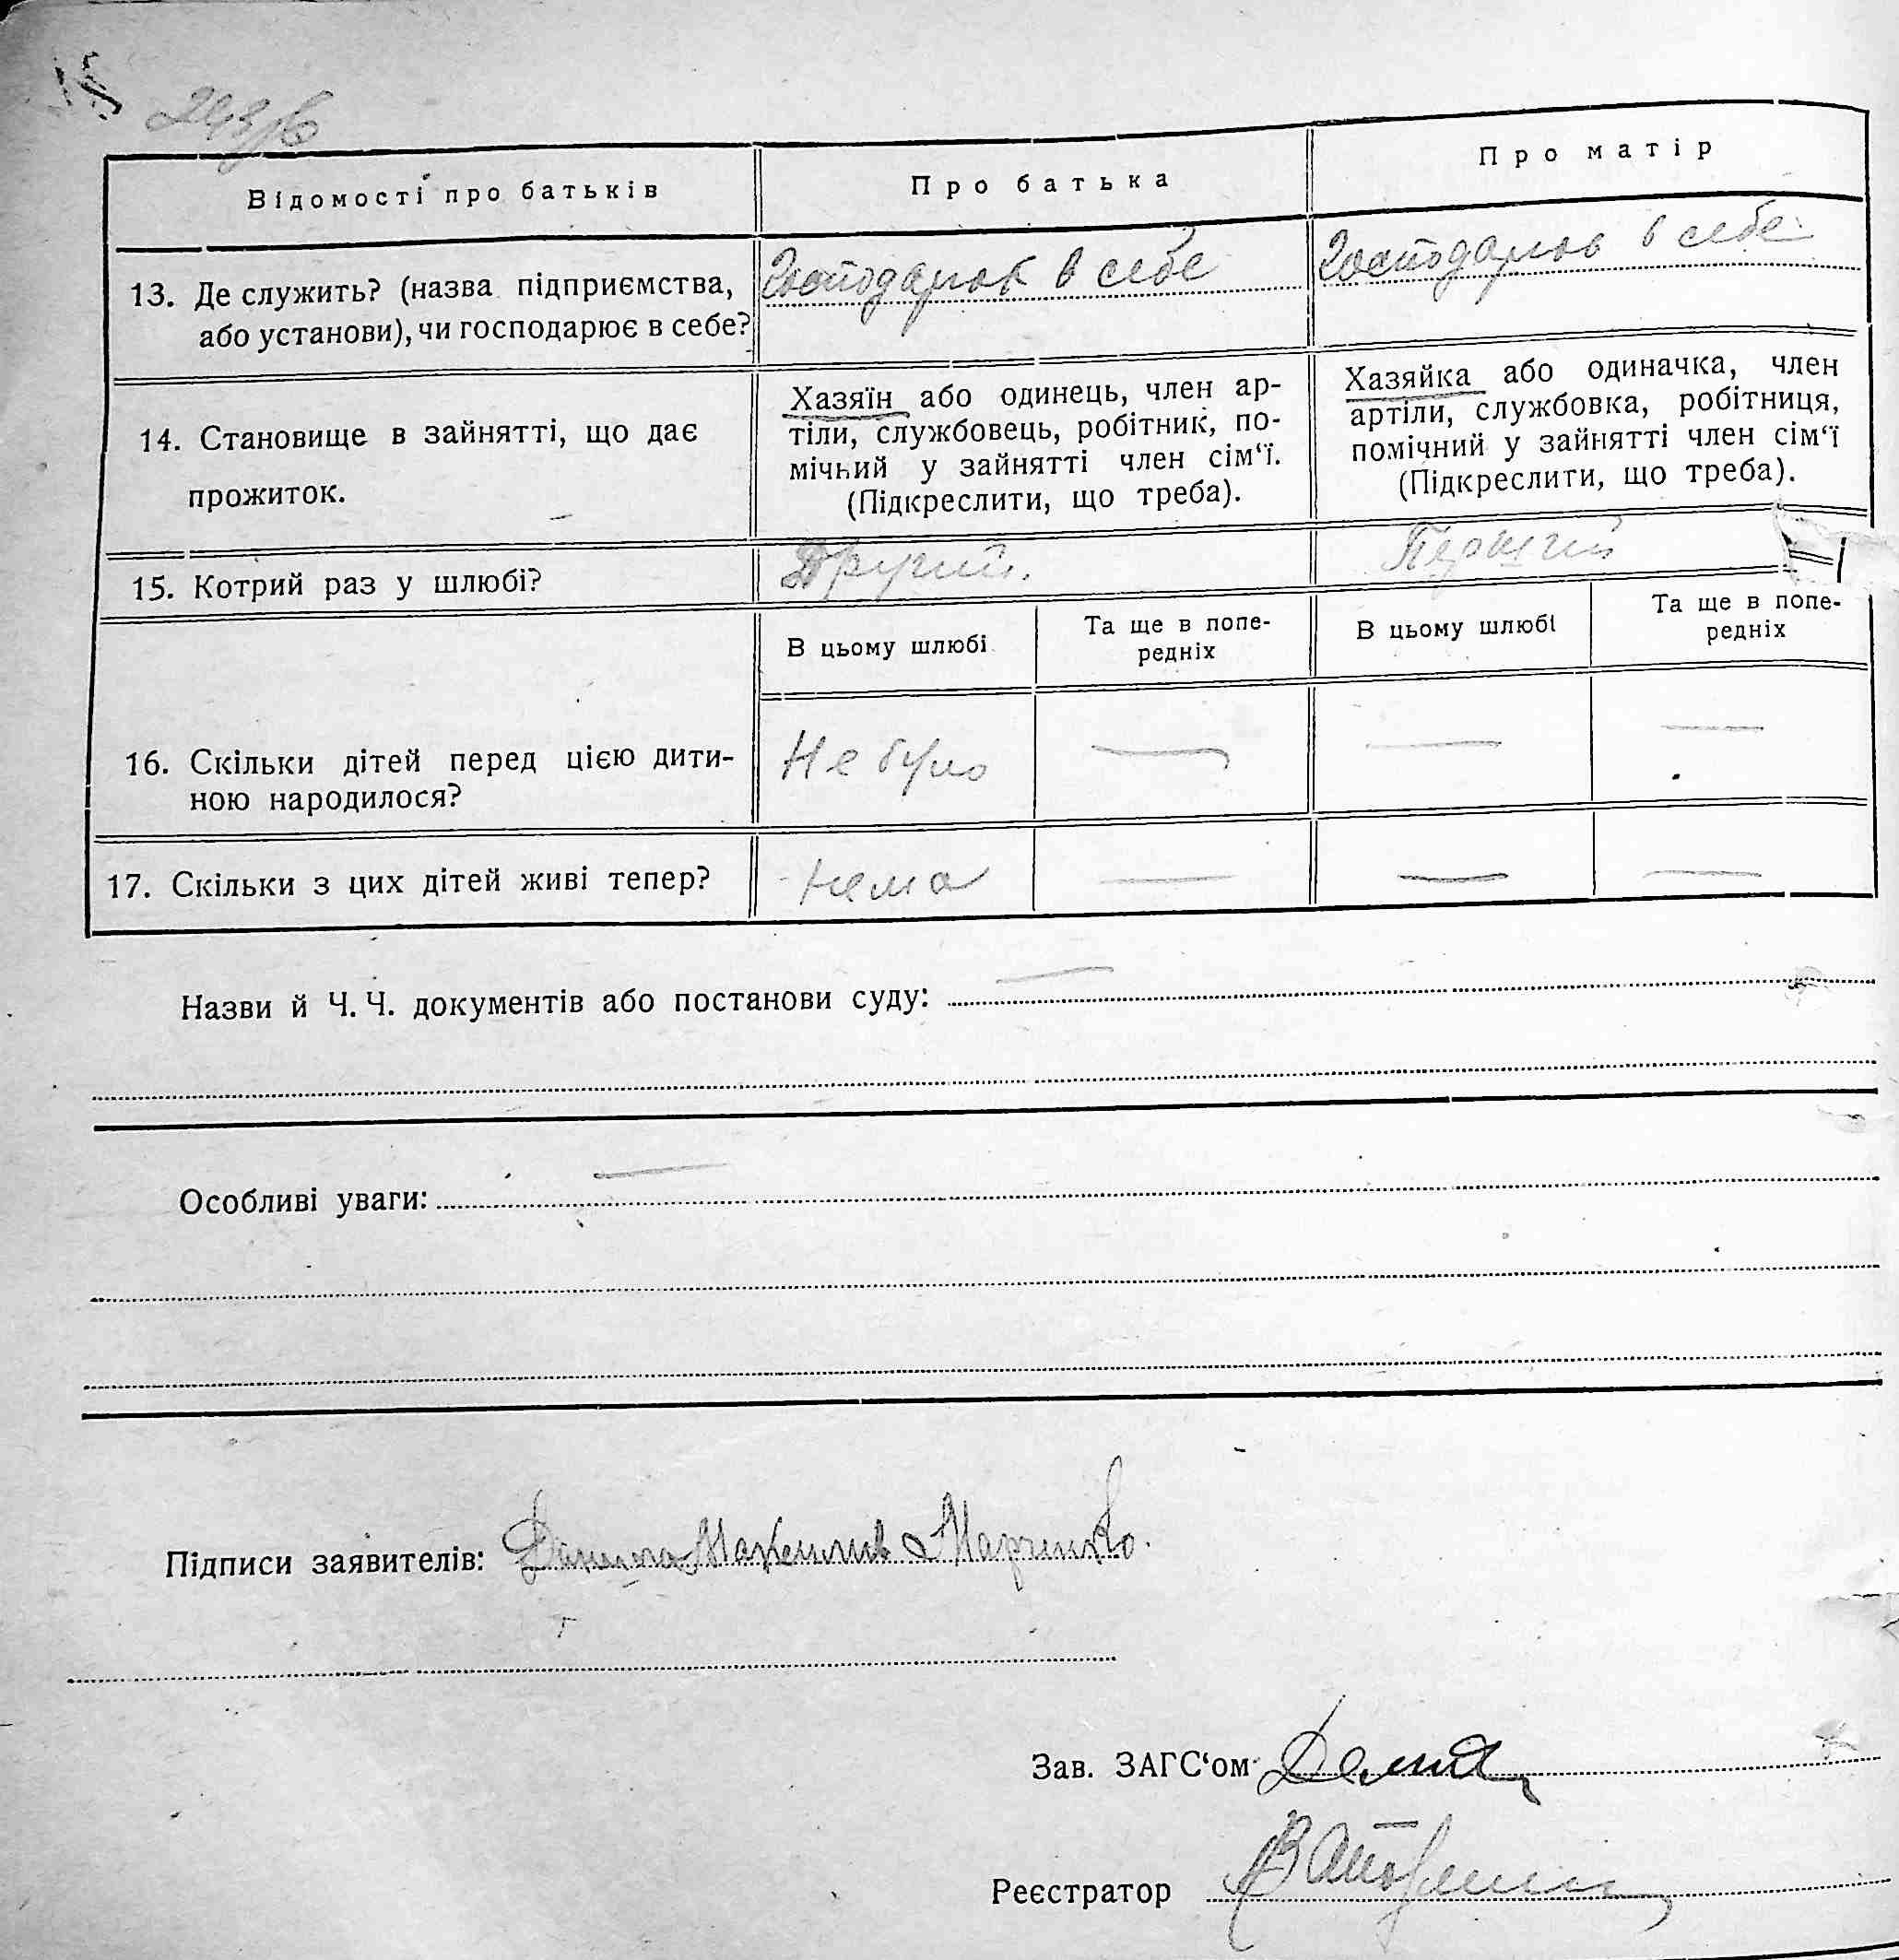 243/в
Відомості про батьків
Про батька
Про матір
13. Де служить? (назва підприємства,
або установи), чи господарює в себе?
Господарює в себе
Господарює в себе
14. Становище в зайнятті, що дає
прожиток.
Хазяїн або одинець, член ар-
тіли, службовець, робітник, по-
мічний у зайнятті член сім‘ї.
(Підкреслити, що треба).
Хазяйка або одиначка, член
артіли, службовка, робітниця,
помічний у зайнятті член сім‘ї
(Підкреслити, що треба).
15. Котрий раз у шлюбі?
Другий.
Перший
В цьому шлюбі
Та ще в попе-
редніх
В цьому шлюбі
Та ще в попе-
редніх
16. Скільки дітей перед цією дити-
ною народилося?
Не було — — —
17. Скільки з цих дітей живі тепер?
нема — — —
Назви й Ч. Ч. документів або постанови суду: —
Особливі уваги: —
Підписи заявителів: Данило Максимів Марченко.
Зав. ЗАГС‘ом
Реєстратор